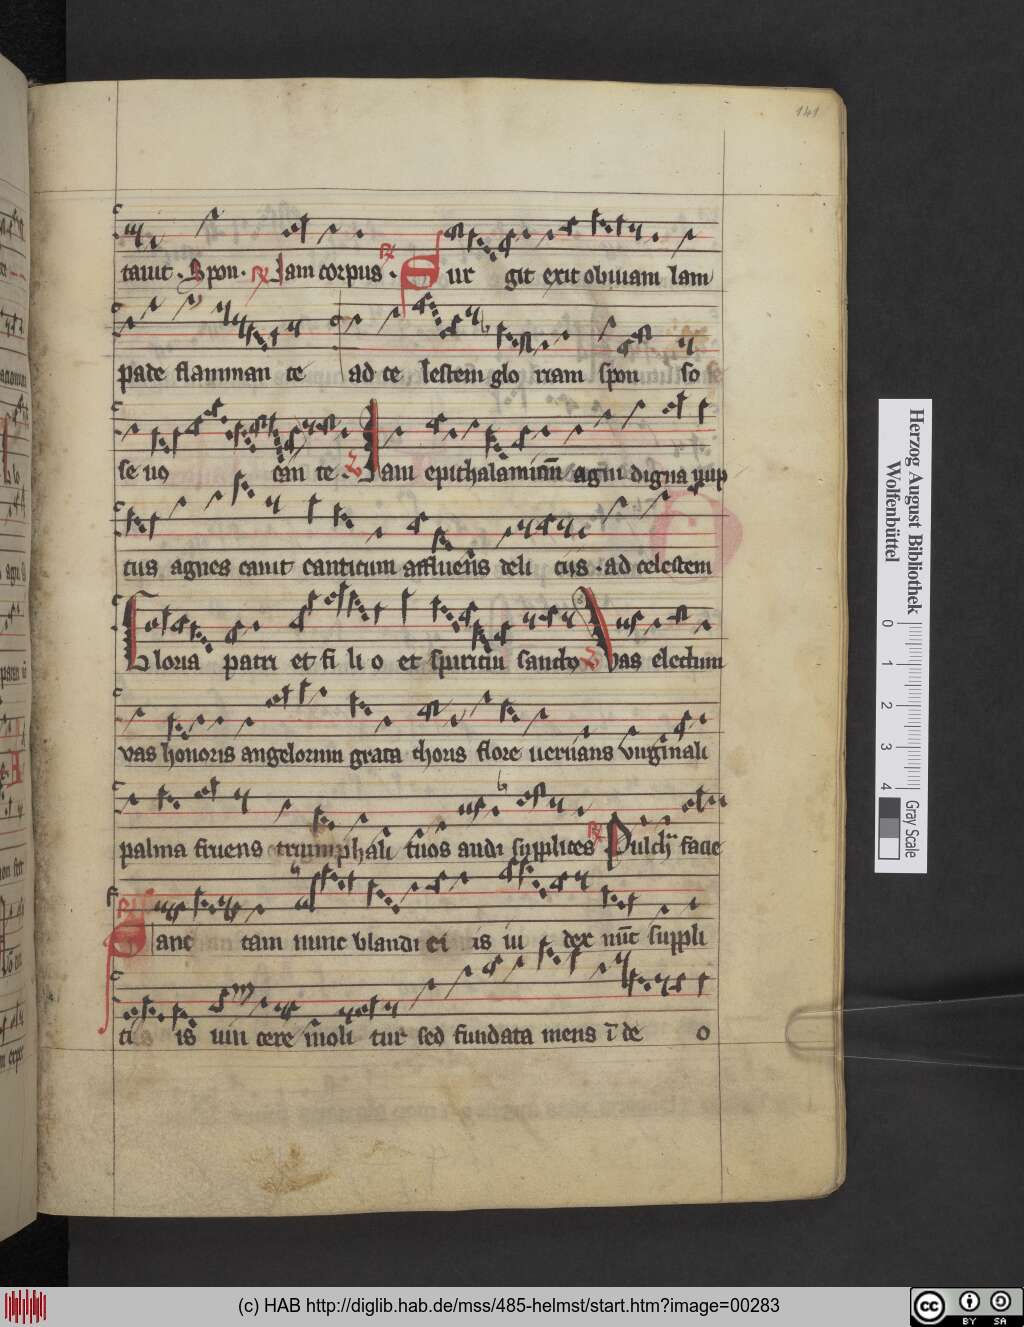 141
tauit · Spon · R Iam corpus · R Sur git exit obuiam lam
pade flamman te ad ce lestem glo riam spon so
se uo can te · V Iam epithalamicum agni digna nup
tus agnes canit canticum affluens deli ciis · ad celestem
Gloria patri et fi li o et spiritui sancto V Vas electum
vas honoris angelorum grata choris flore uernans virginali
palma fruens triumphali tuos audi supplices R Pulch facie
R Sane tam nunc blandi ei is iu dex nunc suppli
ti is uin cere moli tur sed fundata mens i de o
Herzog August Bibliothek
Wolfenbüttel
0 1 2 3 4
Gray Scale
(c) HAB http://diglib.hab.de/mss/485-helmst/start.htm?image=00283
cc BY SA